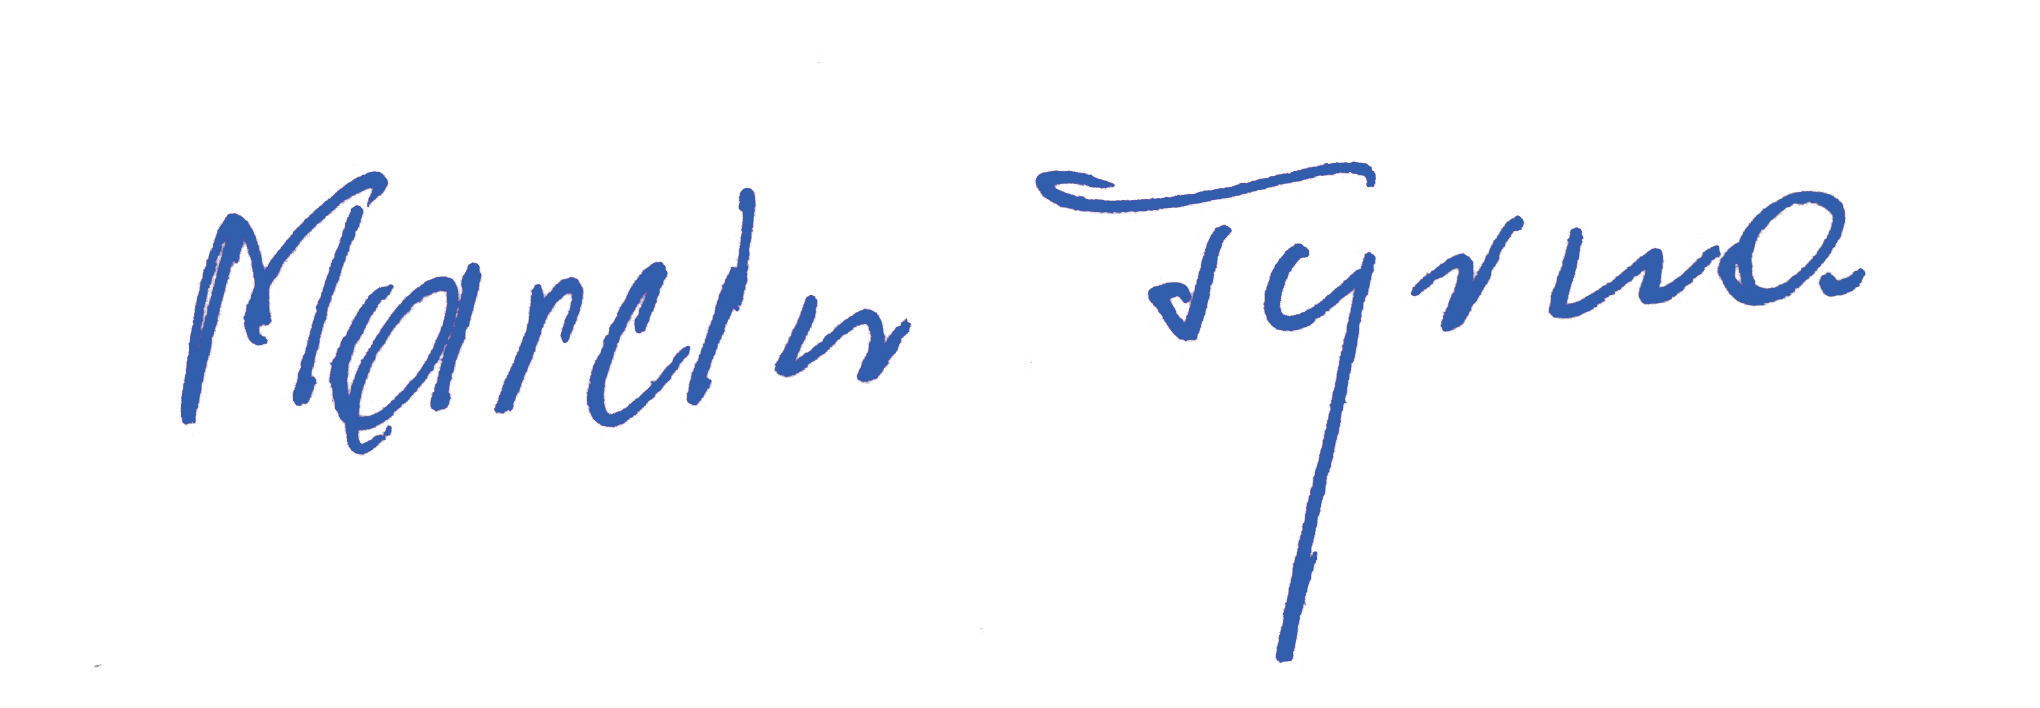 Marcin Tyrna